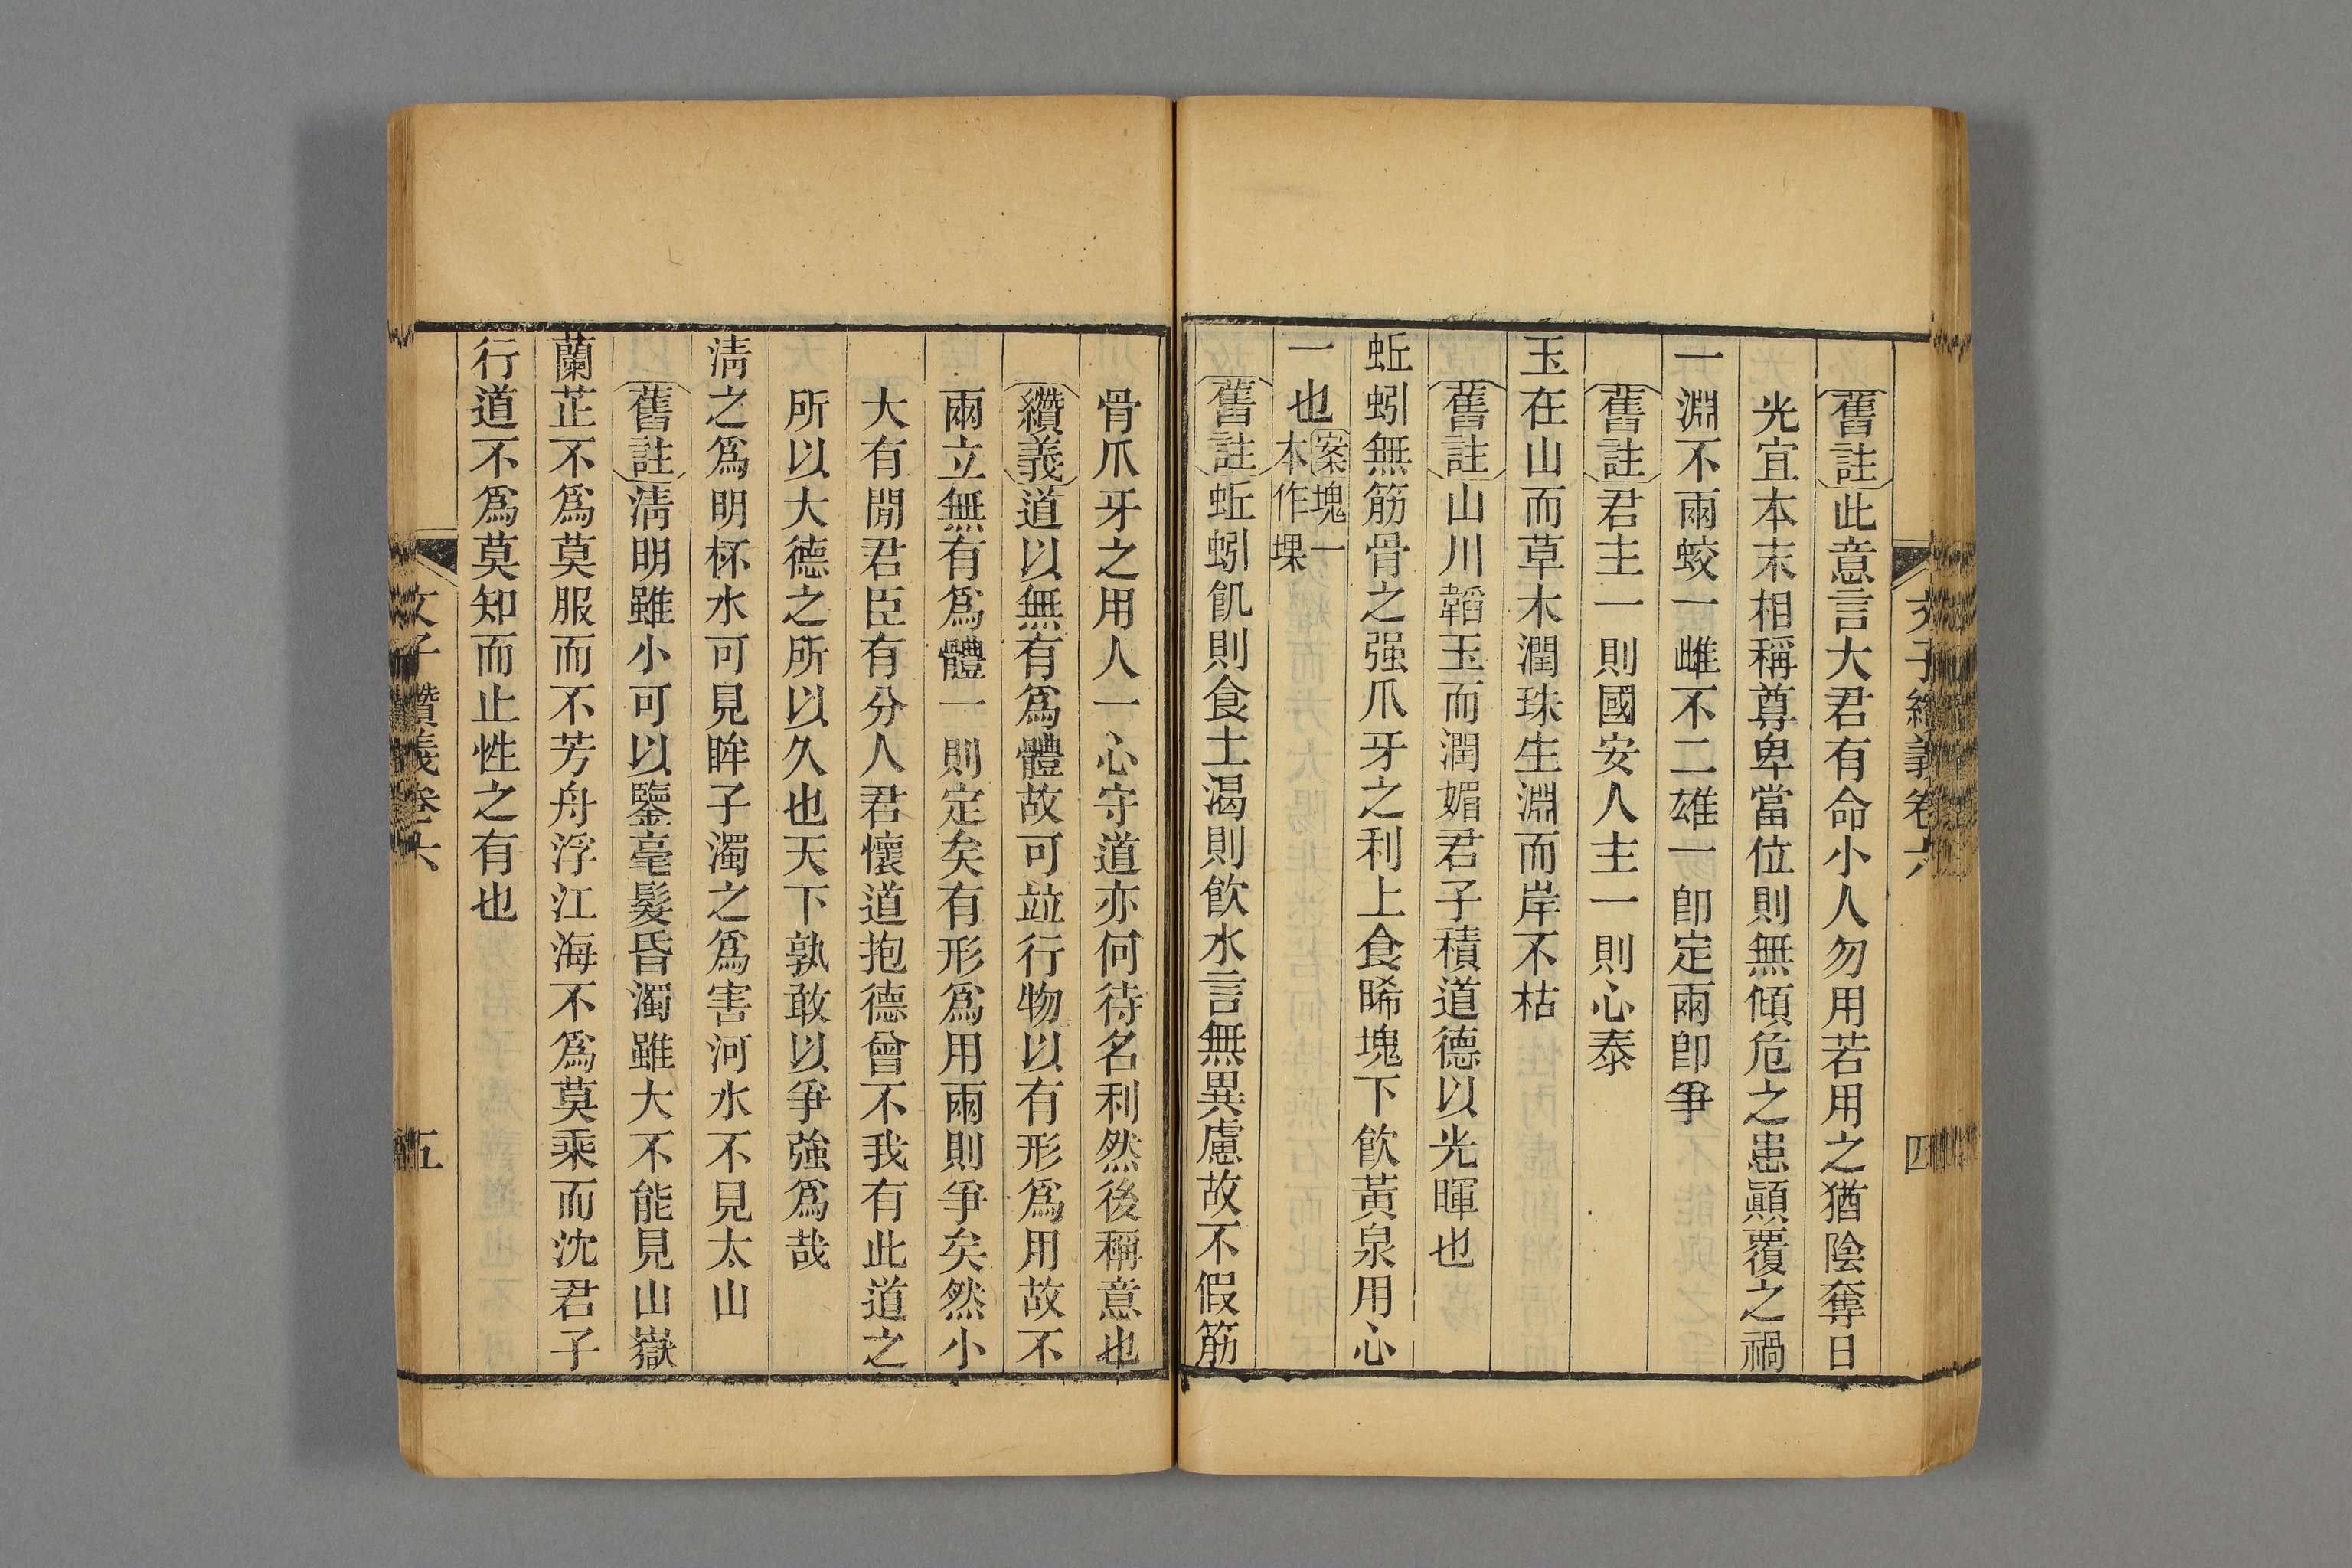 文子纘義卷六
四
舊註此意言大君有命小人勿用若用之猶陰奪日
光宜本末相稱尊卑當位則無傾危之患顚覆之禍
一淵不兩蛟一雌不二雄一卽定兩卽爭
舊註君主一則國安人主一則心泰
玉在山而草木潤珠生淵而岸不枯
舊註山川韜玉而潤媚君子積道德以光暉也
蚯蚓無筋骨之强爪牙之利上食晞塊下飮黃泉用心
一也案塊一
本作堁
舊註蚯蚓飢則食土渴則飮水言無異慮故不假筋
骨爪牙之用人一心守道亦何待名利然後稱意也
纘義道以無有爲體故可竝行物以有形爲用故不
兩立無有爲體一則定矣有形爲用兩則爭矣然小
大有閒君臣有分人君懷道抱德曾不我有此道之
所以大德之所以久也天下孰敢以爭強爲哉
淸之爲明杯水可見眸子濁之爲害河水不見太山
舊註淸明雖小可以鑒毫髮昏濁雖大不能見山嶽
蘭芷不爲莫服而不芳舟浮江海不爲莫乘而沈君子
行道不爲莫知而止性之有也
文子纘義卷六
五